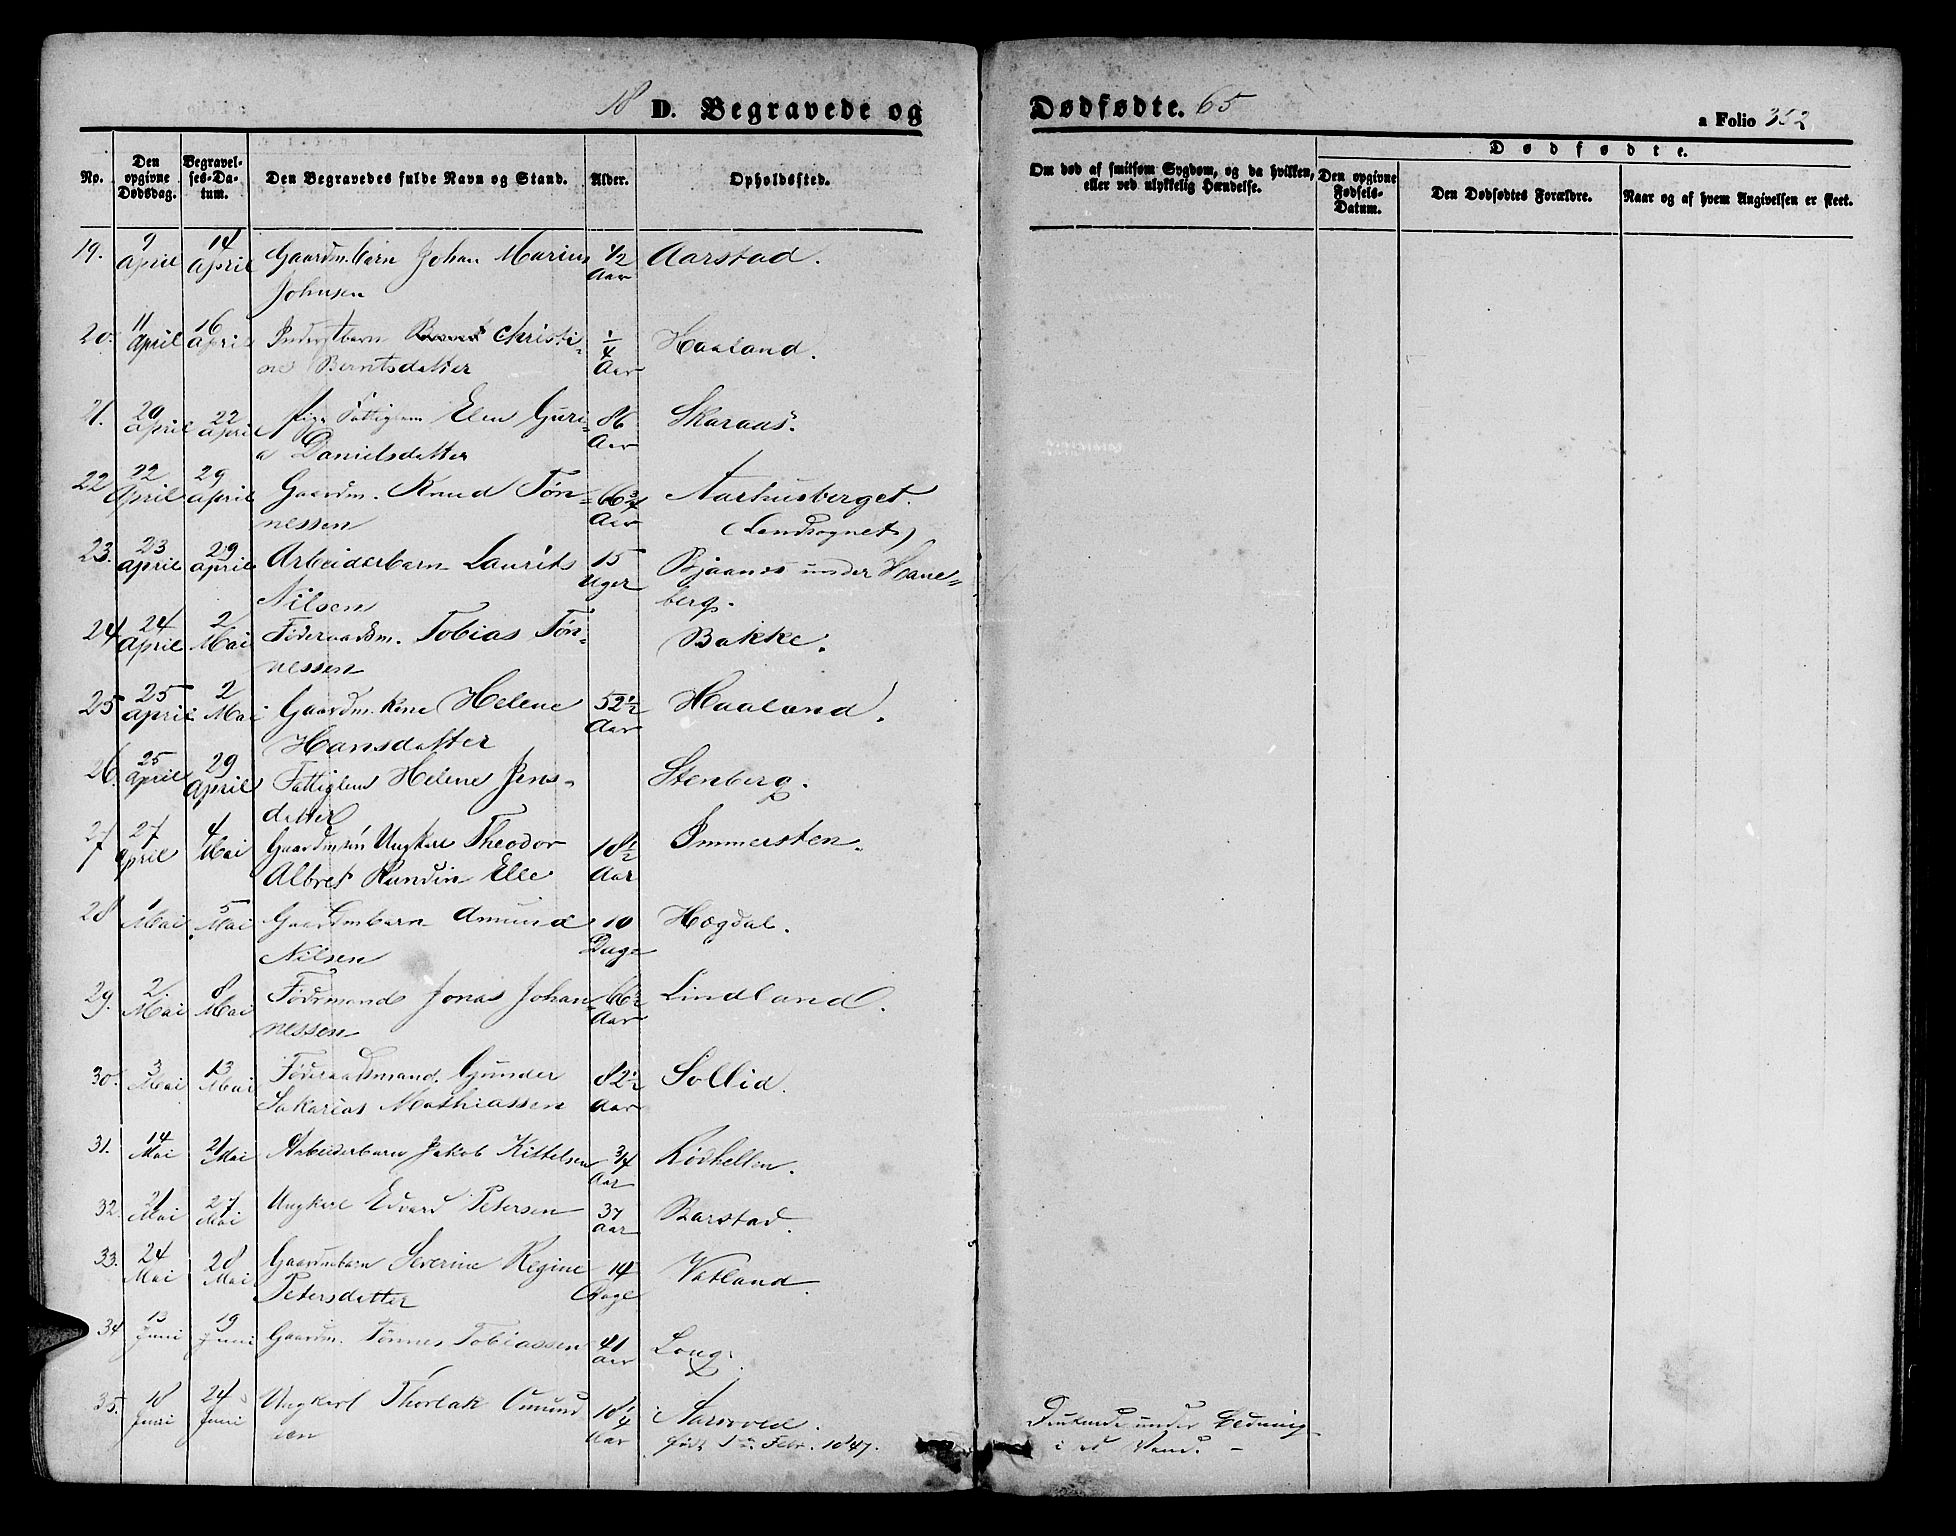 18 D. Begravede og Dødfødte. 65
a Folio 352
No.
Den opgivne Dødsdag.
Begravelses-Datum.
Den Begravedes fulde Navn og Stand.
Alder.
Opholdssted.
Om død af smitsom Sygdom, og da hvilken, eller ved ulykkelig Hændelse.
Dødfødte.
Den opgivne Fødsels-Datum.
Den Dødfødtes Forældre.
Naar og af hvem Angivelsen er skeet.
19. 9 April 14 April Gaardm.barn Johan Marius 1/2 Aar Aarstad.
Johnsen
20. 11 April 16 April Inderstbarn Christi- 1/4 Aar Haaland.
ne Berntsdatter
21. 20 April 22 April Pige Fattiglem Elen Guri- 86 Aar Skaraas.
a Danielsdatter
22 22 April 29 April Gaardm. Knud Tøn- 66 3/4 Aar Aarhusberget.
nessen (Landsognet)
23. 23 April 29 April Arbeiderbarn Laurits 15 Uger Bjaanes under Hane-
Nilsen berg.
24 24 April 2 Mai Føderaadsm. Tobias Tøn- Bakke.
nessen
25 25 April 2 Mai Gaardm. Kone Helene 52 1/2 Aar Haaland.
Hansdatter
26. 25 April 29 April Fattiglem Helene Jens- Stenberg.
datter
27 27 April 4 Mai Gaardmsøn Ungkarl Theodor 18 1/2 Aar Immersten.
Albret Elle
28 1 Mai 5 Mai Gaardmbarn Amund 10 Dage Hægdal.
Nilsen
29. 2 Mai 8 Mai Fødrmand Jonas Johan- 66 1/2 Aar Lindland.
nessen
30. 3 Mai 13 Mai Føderaadsmand Gunder 82 1/2 Aar Sollid.
Sakarias Mathiassen
31. 14 Mai 21 Mai Arbeiderbarn Jakob Kittelsen 3/4 Aar Rødhellen.
32. 21 Mai 27 Mai Ungkarl Edvard Petersen 37 Aar Barstad.
33. 24 Mai 28 Mai Gaardmbarn Severine Regine 14 Dage Vatland.
Petersdatter
34 13 Juni 19 Juni Gaardm. Tønnes Tobiassen 41 Aar Long.
35. 18 Juni 24 Juni Ungkarl Thorlak Omund 18 1/4 Aar
sen født 1ste Febr. 1847.
Druknede under Badning
i et Vand.